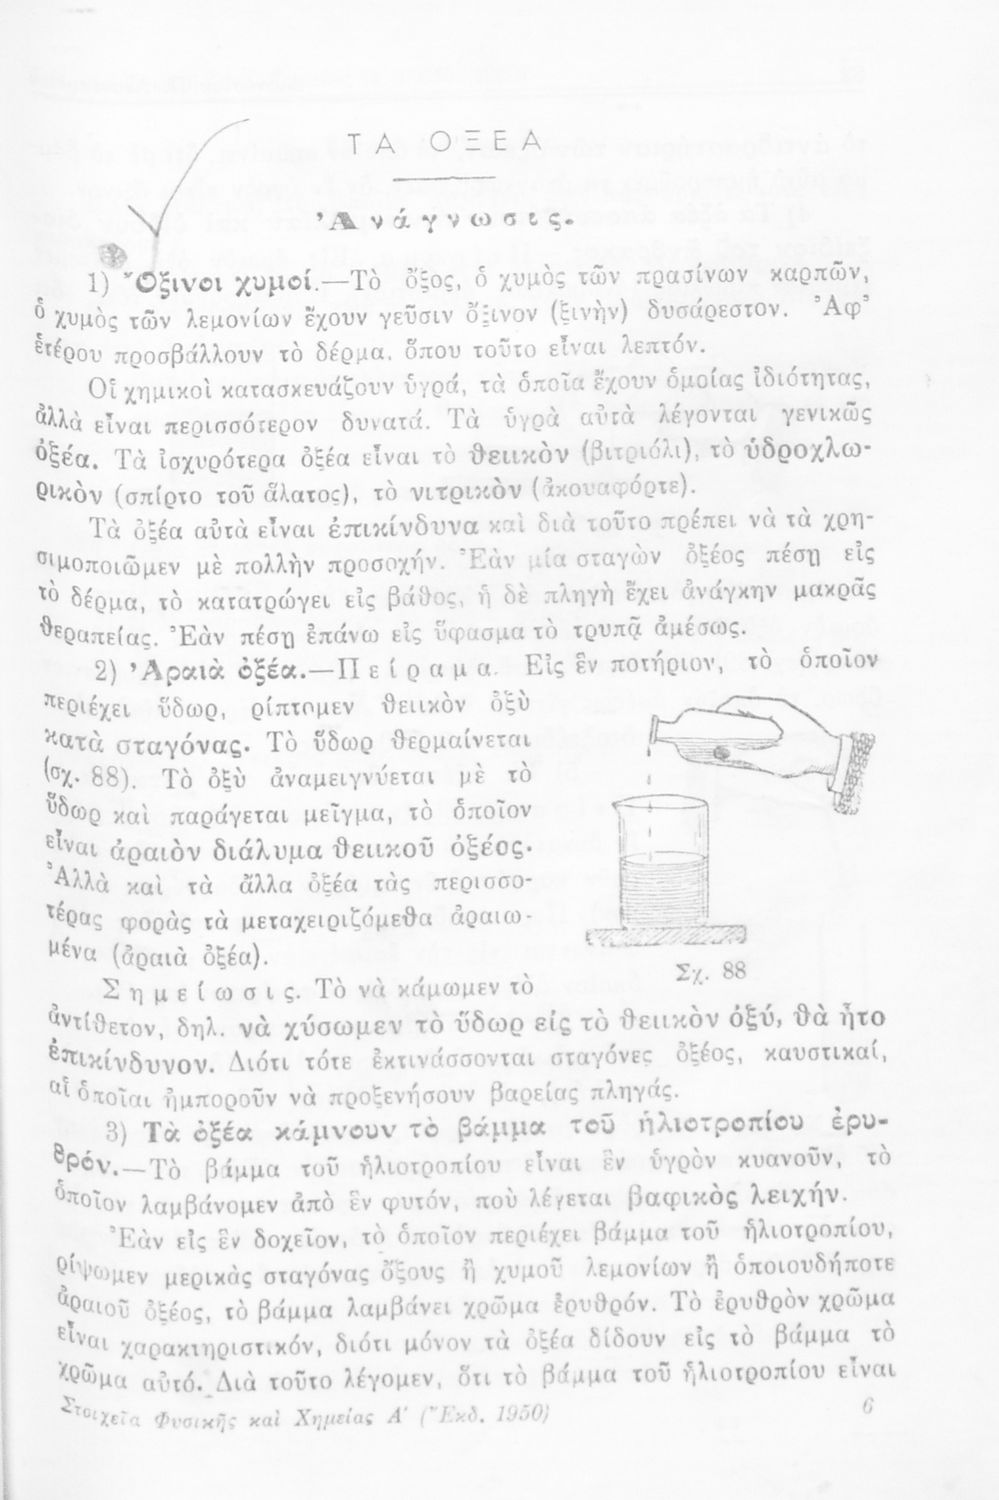 ΤΑ ΟΞΕΑ
Ἀνάγνωσις.
1) Ὄξινοι χυμοί.—Τὸ ὄξος, ὁ χυμὸς τῶν πρασίνων καρπῶν,
ὁ χυμὸς τῶν λεμονίων ἔχουν γεῦσιν ὄξινον (ξινὴν) δυσάρεστον. Ἀφ᾿
ἑτέρου προσβάλλουν τὸ δέρμα, ὅπου τοῦτο εἶναι λεπτόν.
Οἱ χημικοὶ κατασκευάζουν ὑγρά, τὰ ὁποῖα ἔχουν ὁμοίας ἰδιότητας,
ἀλλὰ εἶναι περισσότερον δυνατά. Τὰ ὑγρὰ αὐτὰ λέγονται γενικῶς
ὀξέα. Τὰ ἰσχυρότερα ὀξέα εἶναι τὸ θειικὸν (βιτριόλι), τὸ ὑδροχλω-
ρικὸν (σπίρτο τοῦ ἅλατος), τὸ νιτρικὸν (ἀκουαφόρτε).
Τὰ ὀξέα αὐτὰ εἶναι ἐπικίνδυνα καὶ διὰ τοῦτο πρέπει νὰ τὰ χρη-
σιμοποιῶμεν μὲ πολλὴν προσοχήν. Ἐὰν μία σταγὼν ὀξέος πέσῃ εἰς
τὸ δέρμα, τὸ κατατρώγει εἰς βάθος, ἡ δὲ πληγὴ ἔχει ἀνάγκην μακρᾶς
θεραπείας. Ἐὰν πέσῃ ἐπάνω εἰς ὕφασμα τὸ τρυπᾷ ἀμέσως.
2) Ἀραιὰ ὀξέα.—Πείραμα. Εἰς ἓν ποτήριον, τὸ ὁποῖον
περιέχει ὕδωρ, ρίπτομεν θειικὸν ὀξὺ
κατὰ σταγόνας. Τὸ ὕδωρ θερμαίνεται
(σχ. 88). Τὸ ὀξὺ ἀναμειγνύεται μὲ τὸ
ὕδωρ καὶ παράγεται μεῖγμα, τὸ ὁποῖον
εἶναι ἀραιὸν διάλυμα θειικοῦ ὀξέος.
Ἀλλὰ καὶ τὰ ἄλλα ὀξέα τὰς περισσο-
τέρας φορὰς τὰ μεταχειριζόμεθα ἀραιω-
μένα (ἀραιὰ ὀξέα).
Σχ. 88
Σημείωσις. Τὸ νὰ κάμωμεν τὸ
ἀντίθετον, δηλ. νὰ χύσωμεν τὸ ὕδωρ εἰς τὸ θειικὸν ὀξύ, θὰ ἦτο
ἐπικίνδυνον. Διότι τότε ἐκτινάσσονται σταγόνες ὀξέος, καυστικαί,
αἱ ὁποῖαι ἠμποροῦν νὰ προξενήσουν βαρείας πληγάς.
3) Τὰ ὀξέα κάμνουν τὸ βάμμα τοῦ ἡλιοτροπίου ἐρυ-
θρόν.—Τὸ βάμμα τοῦ ἡλιοτροπίου εἶναι ἓν ὑγρὸν κυανοῦν, τὸ
ὁποῖον λαμβάνομεν ἀπὸ ἓν φυτόν, ποὺ λέγεται βαφικὸς λειχήν.
Ἐὰν εἰς ἓν δοχεῖον, τὸ ὁποῖον περιέχει βάμμα τοῦ ἡλιοτροπίου,
ρίψωμεν μερικὰς σταγόνας ὄξους ἢ χυμοῦ λεμονίων ἢ ὁποιουδήποτε
ἀραιοῦ ὀξέος, τὸ βάμμα λαμβάνει χρῶμα ἐρυθρόν. Τὸ ἐρυθρὸν χρῶμα
εἶναι χαρακτηριστικόν, διότι μόνον τὰ ὀξέα δίδουν εἰς τὸ βάμμα τὸ
χρῶμα αὐτό. Διὰ τοῦτο λέγομεν, ὅτι τὸ βάμμα τοῦ ἡλιοτροπίου εἶναι
Στοιχεῖα Φυσικῆς καὶ Χημείας Α΄ (Ἔκδ. 1950) 6